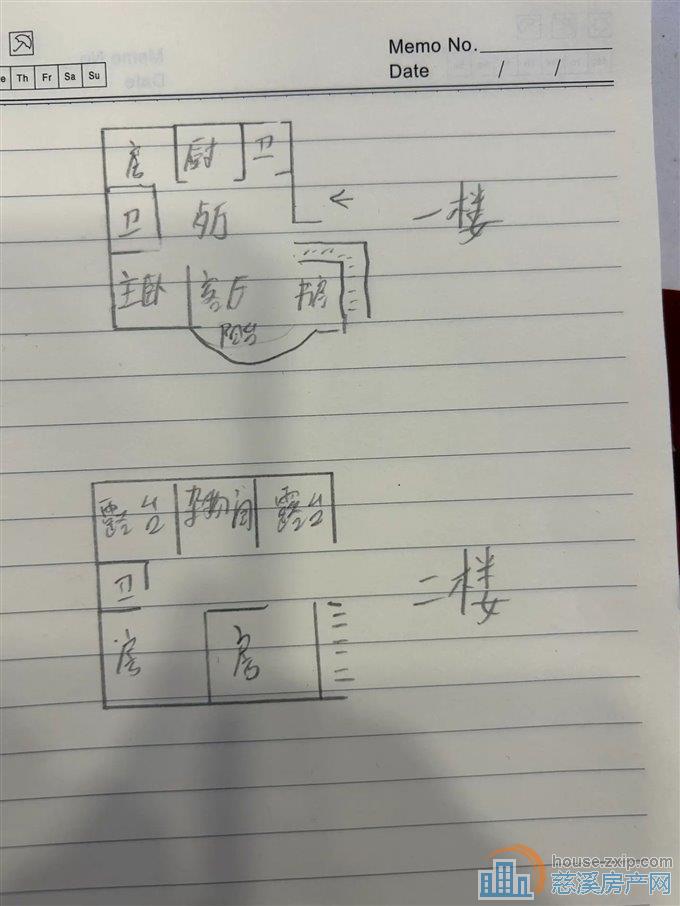 Memo No.
e Th Fr Sa Su
Date / /
房 厨 卫
卫 客厅
一楼
主卧 客厅 书房
阳台
露台 杂物间 露台
卫
二楼
房 房
house.zxip.com
慈溪房产网